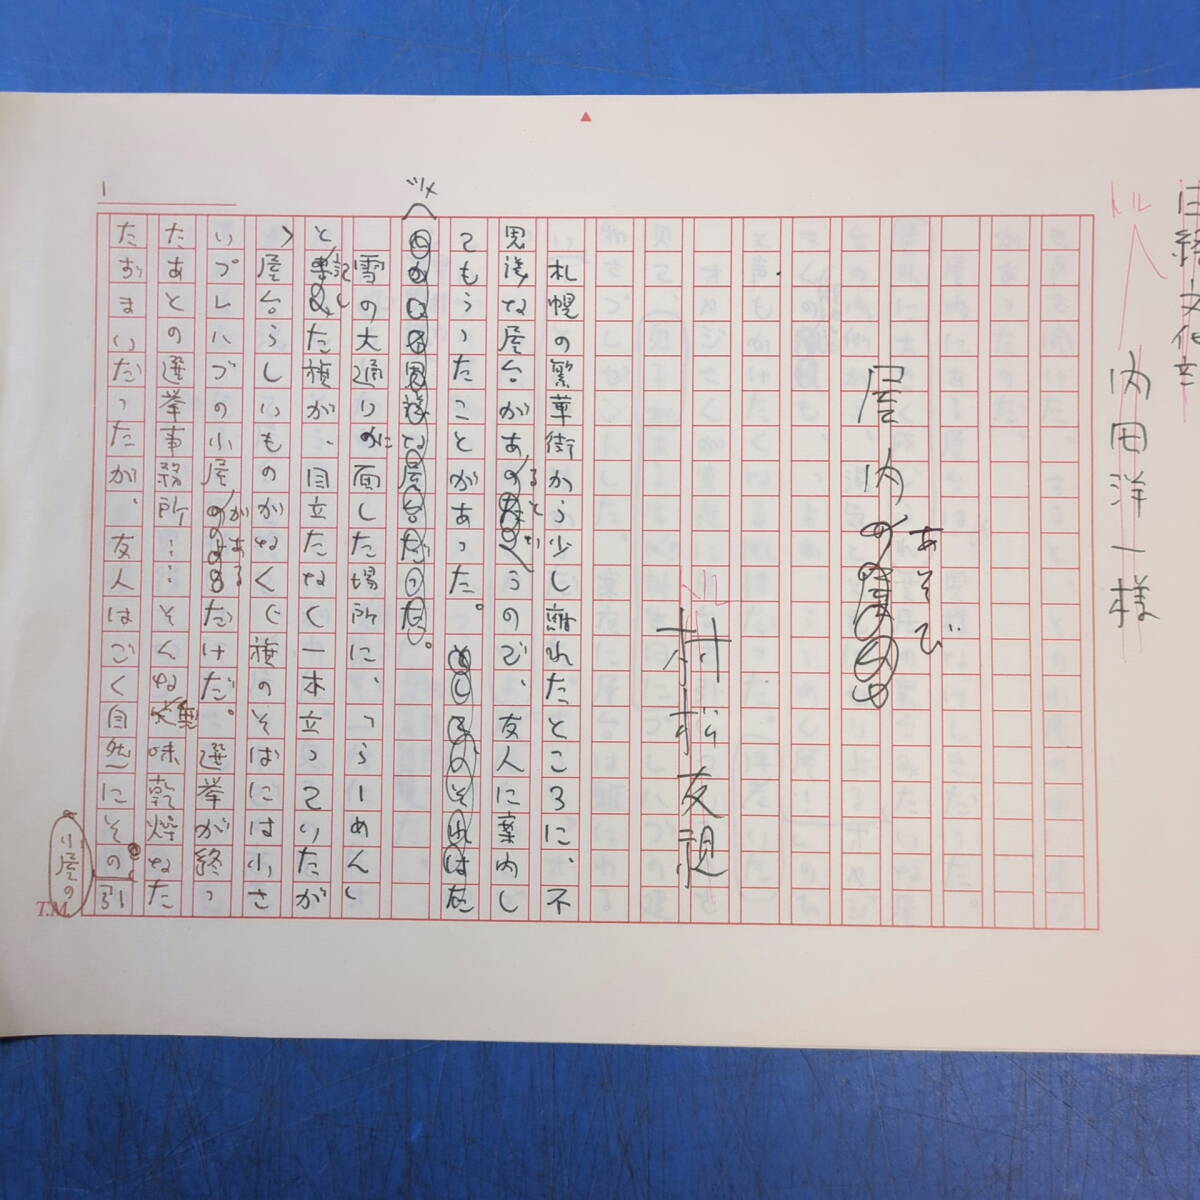 日経文化部
トル
内田洋一様
屋内あそび
村松友視
札幌の繁華街から少し離れたところに、不
思議な屋台があるというので、友人に案内し
てもらったことがあった。
ツメ
雪の大通りに面した場所に、〝らーめん〟
と記した旗が、目立たなく一本立っていたが
、屋台らしいものがなく、旗のそばには小さ
いプレハブの小屋があるだけだ。選挙が終っ
たあとの選挙事務所…そんな無味乾燥なた
たずまいだったが、友人はごく自然にその引
小屋の
1
T.M.